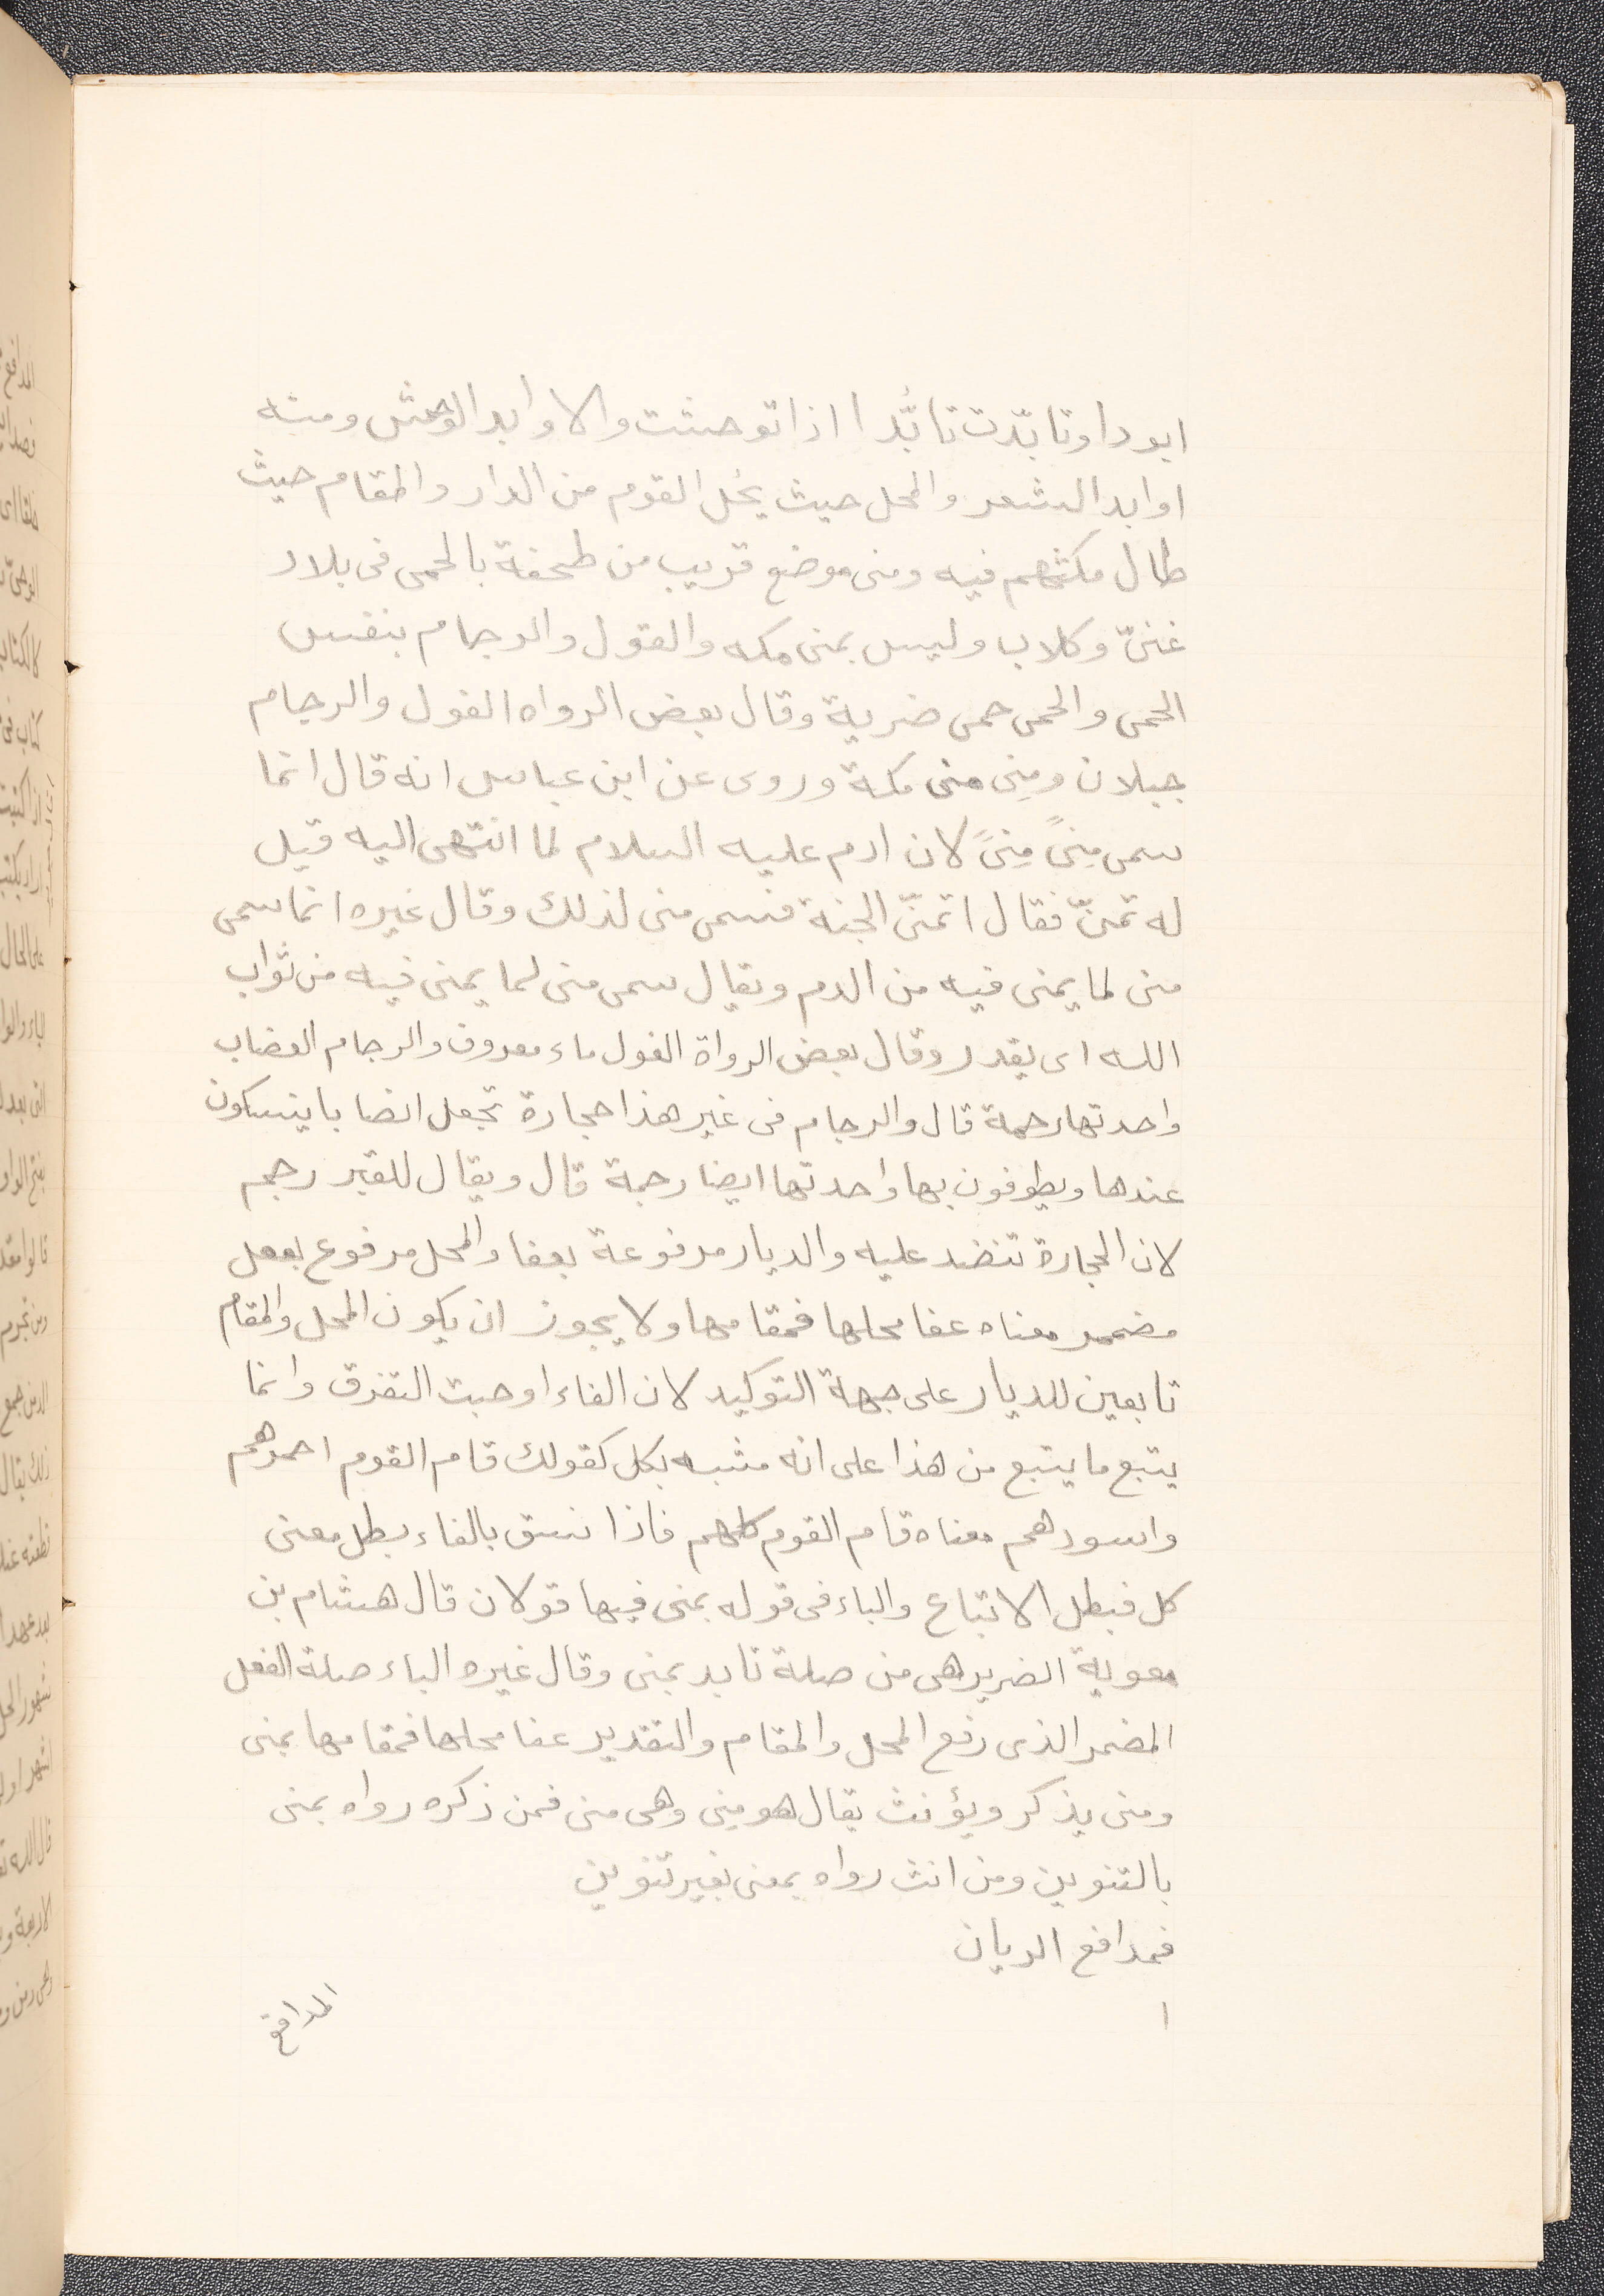 ابودا وتابّدت تابُّدا اذا توحشت والاوابد الوحش ومنه
اوابد الشعر والمحل حيث يحُل القوم من الدار والمقام حيث
طال مكثهم فيه ومنى موضع قريب من طخفة بالحمى فى بلاد
غنىّ وكلاب وليس بمنى مكه والغول والرجام بنفس
الحمى والحمى حمى ضرية وقال بعض الرواه الغول والرجام
جبلان ومِنى منى مكة وروى عن ابن عباس انه قال انما
سمى مِنىً مِنىً لان ادم عليه السلام لما انتهى اليه قيل
له تمنّ فقال اتمنّى الجنة فسمى منى لذلك وقال غيره انما سمى
منى لما يمنى فيه من الدم ويقال سمى منى لما يمنى فيه من ثواب
الله اى يقدر وقال بعض الرواة الغول ماء معروف والرجام الهضاب
واحدتها رجمة قال والرجام فى غير هذا حجارة تجعل انصابا ينسكون
عندها ويطوفون بها واحدتها ايضا رجمة قال ويقال للقبر رجم
لان الحجارة تنضد عليه والديار مرفوعة بعفا والمحل مرفوع بفعل
مضمر معناه عفا محلها فمقامها ولا يجوز ان يكون المحل والمقام
تابعين للديار على جهة التوكيد لان الفاء اوجبت التفرق وانما
يتبع ما يتبع من هذا على انه مشبه بكل كقولك قام القوم احمرهم
واسودهم معناه قام القوم كلهم فاذا نسق بالفاء بطل معنى
كل فبطل الاتباع والباء فى قوله بمنى فيها قولان قال هشام بن
معوية الضرير هى من صلة تابد بمنى وقال غيره الباء صلة الفعل
المضمر الذى رفع المحل والمقام والتقدير عفا محلها فمقامها بمنى
ومنى يذكر ويؤنث يقال هو مِنى وهى منى فمن ذكره رواه بمنى
بالتنوين ومن انث رواه بمعنى بغير تنوين
فمدافع الريان
ا
المدافع